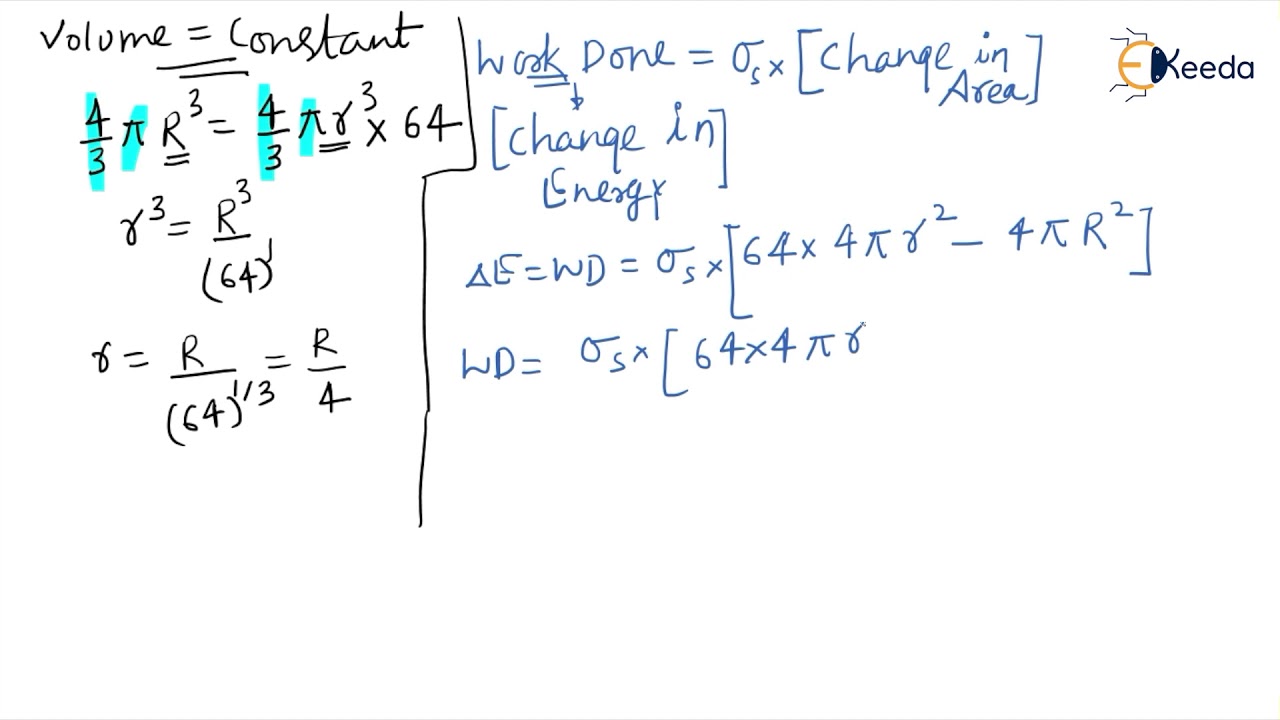 Volume = Constant
4/3 π R³ = 4/3 π r³ × 64
r³ = R³/(64)¹
r = R/(64)^1/3 = R/4
Work Done = σs × [Change in Area]
[Change in Energy]
ΔE = WD = σs × [64 × 4πr² − 4πR²]
WD = σs × [64×4πr
EKeeda